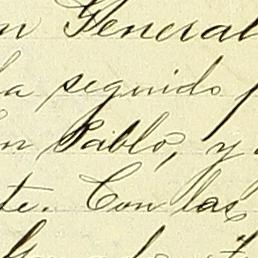 n General
ha seguido
n Pablo, y
te. Con las